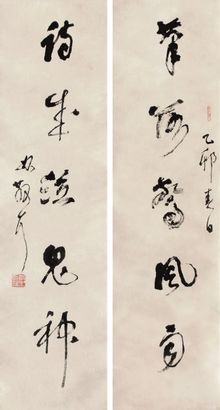 筆落驚風雨
乙卯春日
詩成泣鬼神
林散耳